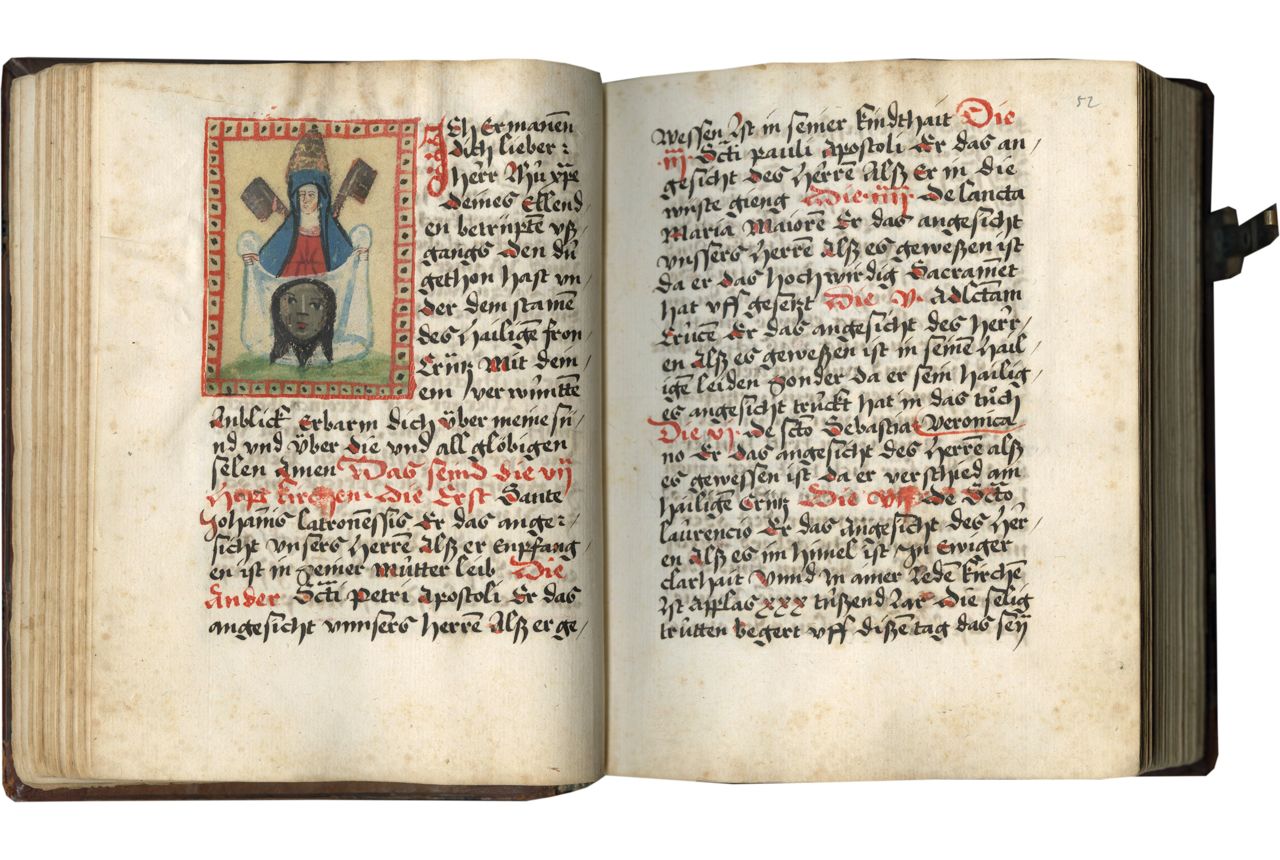 Ich Ermanen
dich lieber :
herr Jhū xp̄e
deines Ellend
en betrüpten vß /
gangs den dū
gethon hast vn /
der dem stamē
des hailigē fron /
Crütz Mit dem /
em verwūntē
Anblick Erbarm dich über meine sü /
nd vnd über die vnd all glöbigen
selen Amen Was seind die vij
hopt kirchen die Erst Sante
Johānis latronēssis Er das ange : /
sicht vnsers herrē Alß er Enpfang /
en ist in seiner Mūtter leib Die
Ander Scti Petri Apostoli Er das
angesicht vnnsers herrē Alß er ge /
52
wessen Jst in seiner kindthait Die
·iij· Scti pauli Apostoli Er das an /
gesicht des herrē Alß Er in die
wüste gieng Die ·iiij· de sancta
Maria Maiorē Er das angesicht
vnssers herrē Alß es geweßen ist
da er das hochwirdig Sacramēt
hat vff gesetzt Die v· Ad sctam
Crūcē Er das angesicht des herr /
en Alß es geweßen ist in seinē hail /
igē leiden Sonder da er sein hailig /
es angesicht trückt hat in das tůch
Die vj· de scto Sebastia Veronica
no Er das angesicht des herrē alß
es gewessen ist da er verschied am
hailigē Crütz Die vij de Scto
laurencio Er das Angesicht des her /
en Alß es im himel ist Jn Ewiger
clarhait Vnnd in ainer yedē kirchē
ist Applas xxx tūßend Jar Die selig
trütten begert vff dißē tag das seÿ